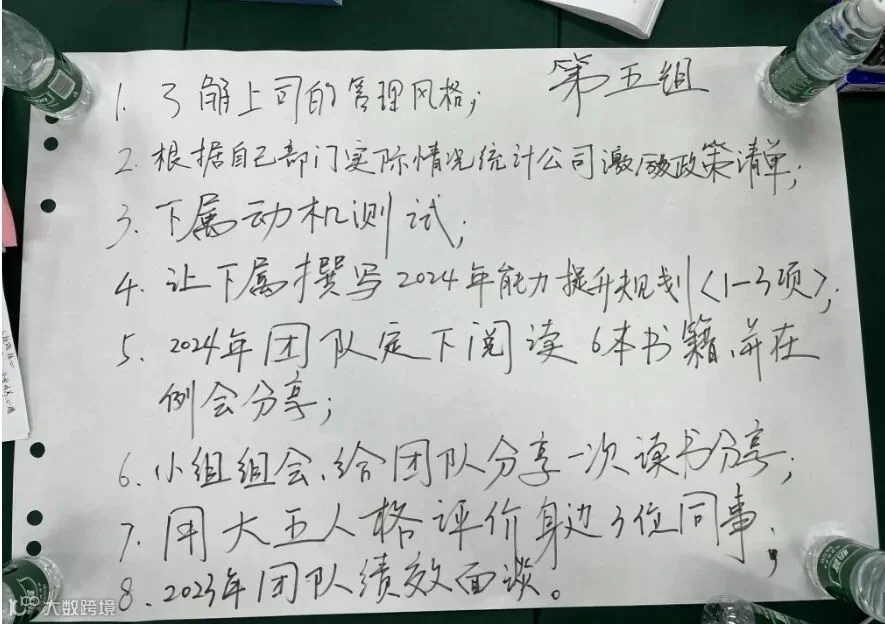 第五组
1. 了解上司的管理风格;
2. 根据自己部门实际情况统计公司激励政策清单;
3. 下属动机测试;
4. 让下属撰写2024年能力提升规划<1-3项>;
5. 2024年团队定下阅读6本书籍、并在
例会分享;
6. 小组组会、给团队分享一次读书分享;
7. 用大五人格评价身边3位同事;
8. 2023年团队绩效面谈。
大数跨境